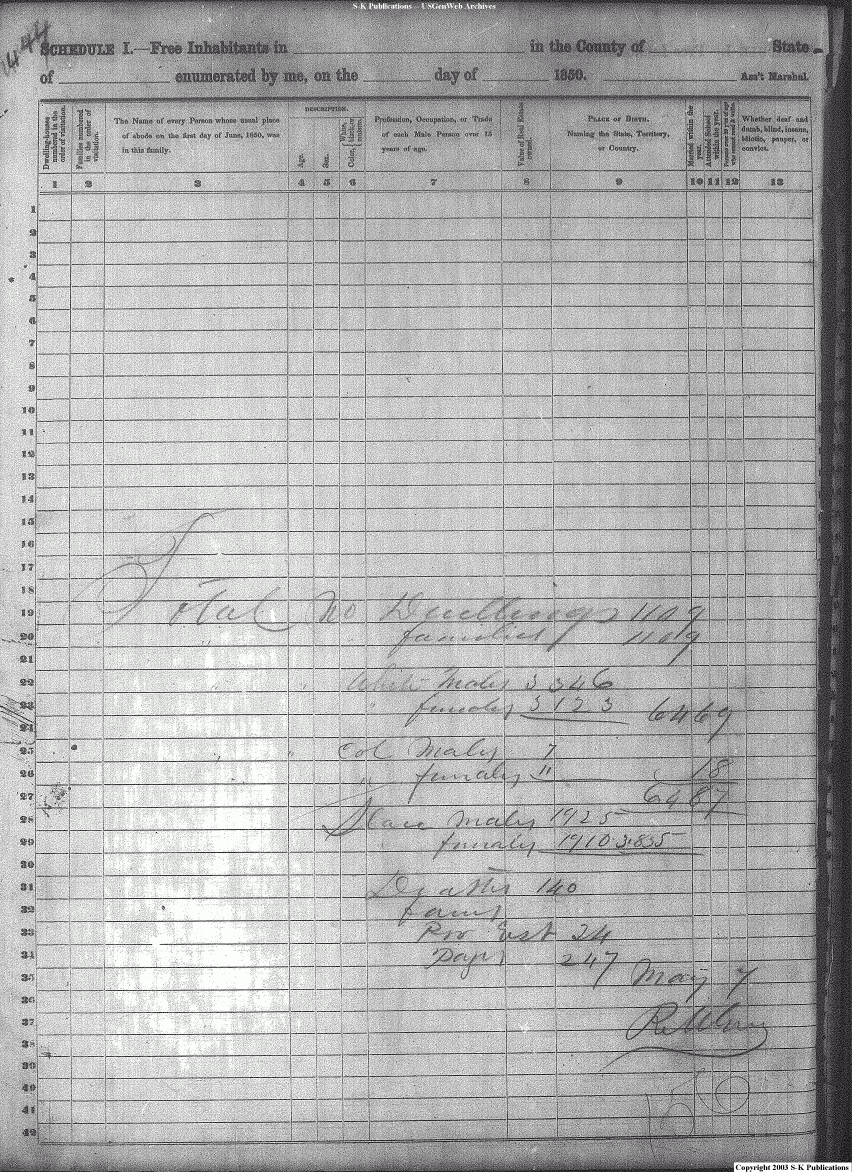 S-K Publications - USGenWeb Archives
444
SCHEDULE I.—Free Inhabitants in in the County of State
of enumerated by me, on the day of 1850. Ass't Marshal.
Dwelling-houses numbered in the order of visitation.
Families numbered in the order of visitation.
The Name of every Person whose usual place of abode on the first day of June, 1850, was in this family.
DESCRIPTION.
Age.
Sex.
Color, White, black, or mulatto.
Profession, Occupation, or Trade of each Male Person over 15 years of age.
Value of Real Estate owned.
PLACE OF BIRTH.
Naming the State, Territory, or Country.
Married within the year.
Attended School within the year.
Persons over 20 y'rs of age who cannot read & write.
Whether deaf and dumb, blind, insane, idiotic, pauper, or convict.
1 2 3 4 5 6 7 8 9 10 11 12 13
1
2
3
4
5
6
7
8
9
10
11
12
13
14
15
16
17
18
19 Total No Dwellings 1109
20 families 1109
21
22 White Males 3346
23 " females 3123 6469
24
25 " Col Males 7
26 " females 11 18
27 6487
28 Slave Males 1925
29 " females 1910 3835
30
31 Deaths 140
32 farms
33 Pro Est 24
34 Pages 247
35 May 7
36
37
38
39
40
41
42
Copyright 2003 S-K Publications